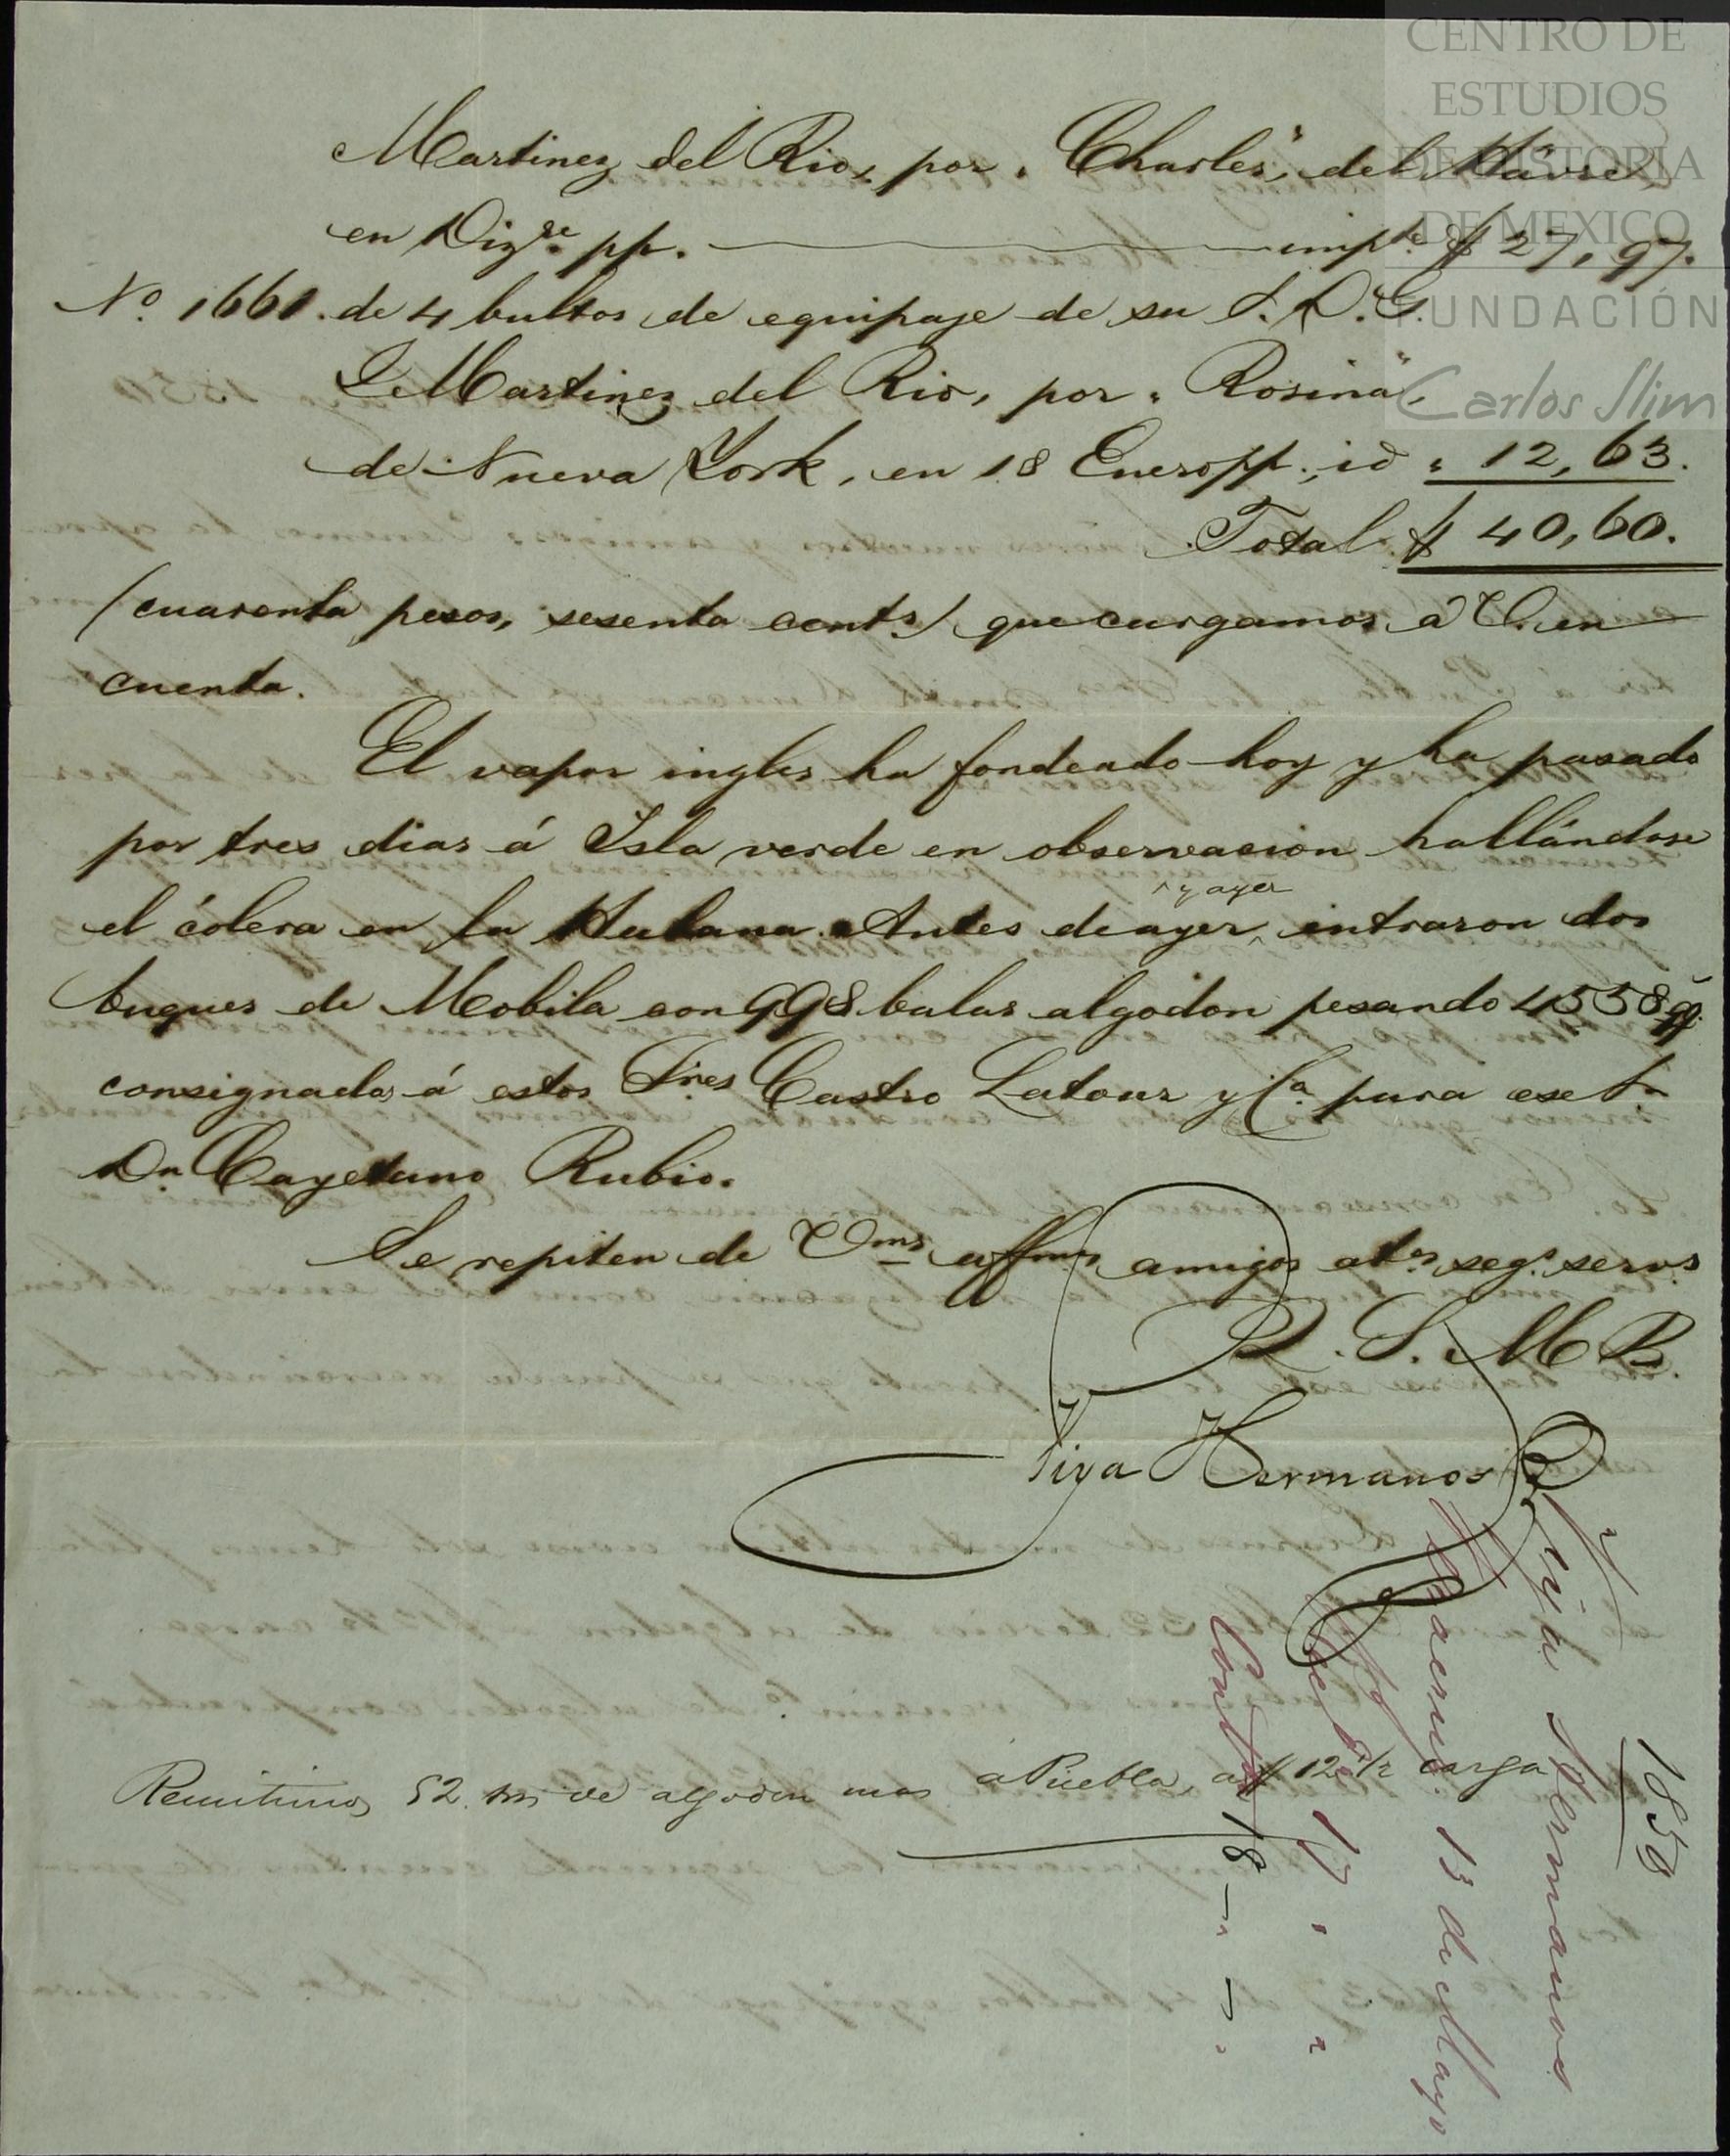 CENTRO DE
ESTUDIOS
DE HISTORIA
DE MEXICO
FUNDACIÓN
Carlos Slim
Martinez del Rio, por "Charles", del Havre
en Diz.re pp. imp.te $ 27,97.
No. 1661. de 4 bultos de equipaje de su S. D. G.
L Martinez del Rio, por "Rosina",
de Nueva York, en 18 Enero pp., id " 12,63.
Total $ 40,60.
(cuarenta pesos, sesenta cents) que cargamos á V. en
cuenta.
El vapor ingles ha fondeado hoy y ha pasado
por tres dias á Isla verde en observacion hallándose
el cólera en la Habana. Antes de ayer y ayer entraron dos
buques de Mobila con 998 balas algodon pesando 4558 qq.
consignadas á estos Sres Castro Latour y Ca. para ese Sr
Dn Cayetano Rubio.
Se repiten de Vms affmos amigos ats. segs. servs.
Q. S. M. B.
Viya Hermanos
Remitimos 52 de algodon mas a Puebla, a $ 12 1/2 carga
1850
Viya Hermanos
Veracruz 13 de Mayo
Recbi 17 " "
Contda 18 - " - "